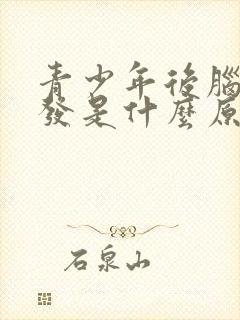 青少年後腦
發是什麼原
石泉山